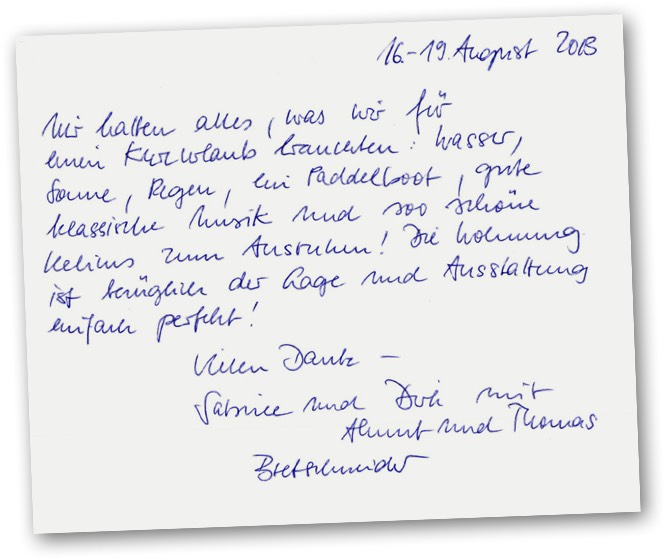 16.-19. August 2013
Wir hatten alles, was wir für
einen Kurzurlaub brauchten: Wasser,
Sonne, Regen, ein Paddelboot, gute
klassische Musik und soo schöne
Kelims zum Ausruhen! Die Wohnung
ist bezüglich der Lage und Ausstattung
einfach perfekt!
Vielen Dank –
Sabine und Dirk mit
Almut und Thomas
Bretschneider